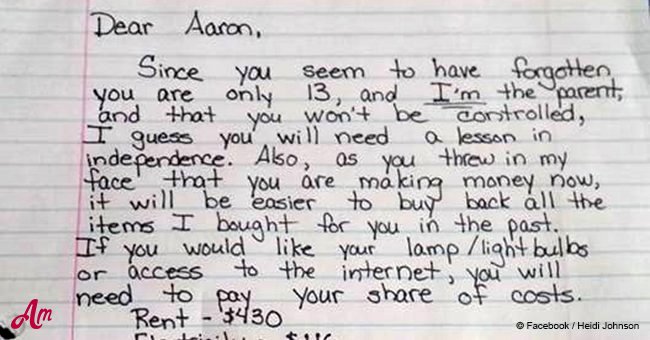 Dear Aaron,
Since you seem to have forgotten
you are only 13, and I'm the parent,
and that you won't be controlled,
I guess you will need a lesson in
independence. Also, as you threw in my
face that you are making money now,
it will be easier to buy back all the
items I bought for you in the past.
If you would like your lamp/lightbulbs
or access to the internet, you will
need to pay your share of costs.
Rent - $430
Am
© Facebook / Heidi Johnson